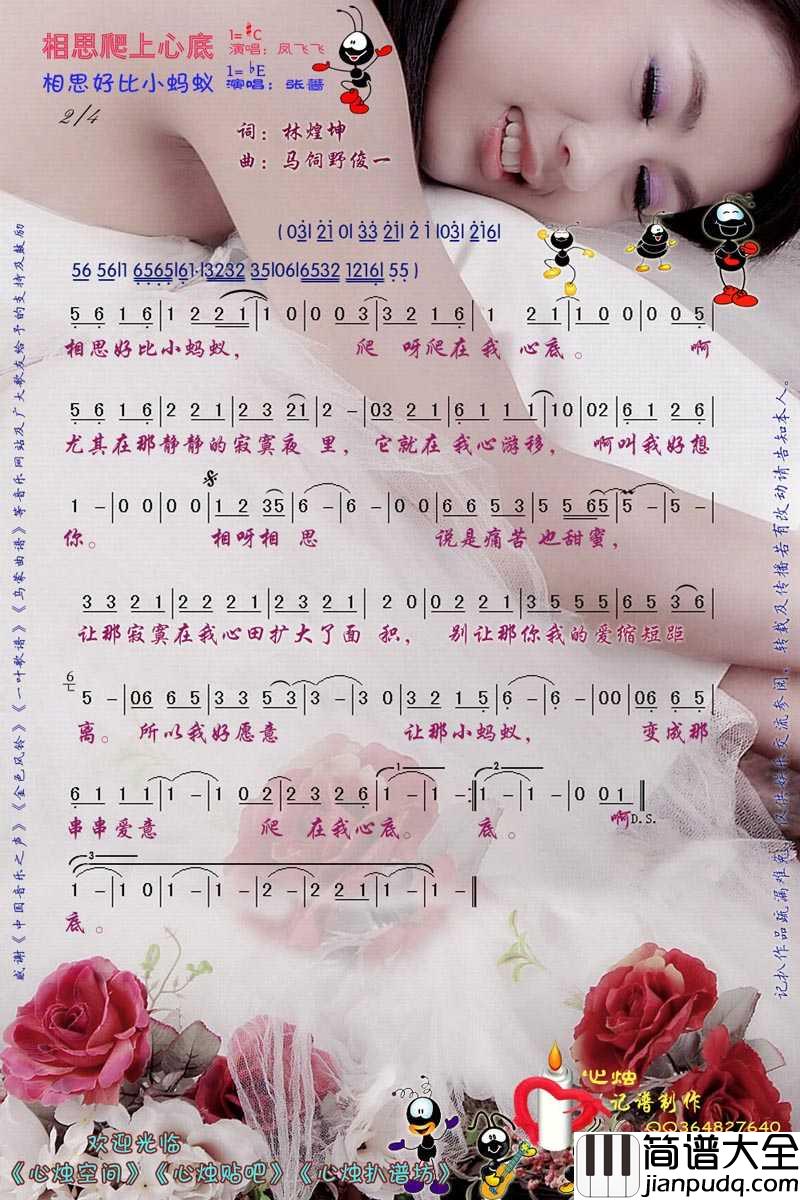 相思爬上心底 1=♯C 演唱：凤飞飞
相思好比小蚂蚁 1=♭E 演唱：张蔷
2/4
词：林煌坤
曲：马饲野俊一
5 6 1 6|1 2 2 1|1 0|0 0 3|3 2 1 6|1 2 1|1 0 0|0 0 5|
相思好比小蚂蚁， 爬 呀爬在我 心底。 啊
5 6 1 6|2 2 1|2 3 21|2 -|03 2 1|6 1 1 1|10|02|6 1 2 6|
尤其在那静静的寂寞夜 里，它就在 我心游移， 啊叫我好想
1 -|0 0|0 0|1 2 35|6 -|6 0|6 6 5 3|5 565|5 -|5 -|
你。 相呀相 思 说是痛苦也甜蜜，
3 3 2 1|2 2 2 1|2 3 2 1|2 0|0 2 2 1|3 5 5 5|6 5 3 6|
让那寂寞在我心田扩大了面 积， 别让那你我的爱缩短距
5 -|06 6 5|3 3 5|3 -|3 0|3 2 1 5|6 -|6 -|0 0|06 6 5|
离。所以我好愿意 让那小蚂蚁， 变成那
6 1 1 1|1 -|1 0 2|2 3 2 6|1 -|1 -:|1 -|1 -|0 01‖
串串爱意 爬 在我心底。 底。 啊D.S.
1 -|1 0|1 -|1 -|2 -|2 2 1|1 -|1 -‖
底。
感谢《中国音乐之声》《金色风铃》《一叶歌谱》《乌蒙曲谱》等音乐网站及广大歌友给予的支持及鼓励
记扒作品疏漏难免，仅供娱乐交流参阅。转载及传播若有改动请告知本人。
心烛
记谱制作
QQ364827640
欢迎光临
《心烛空间》《心烛贴吧》《心烛扒谱坊》
简谱大全
jianpudq.com